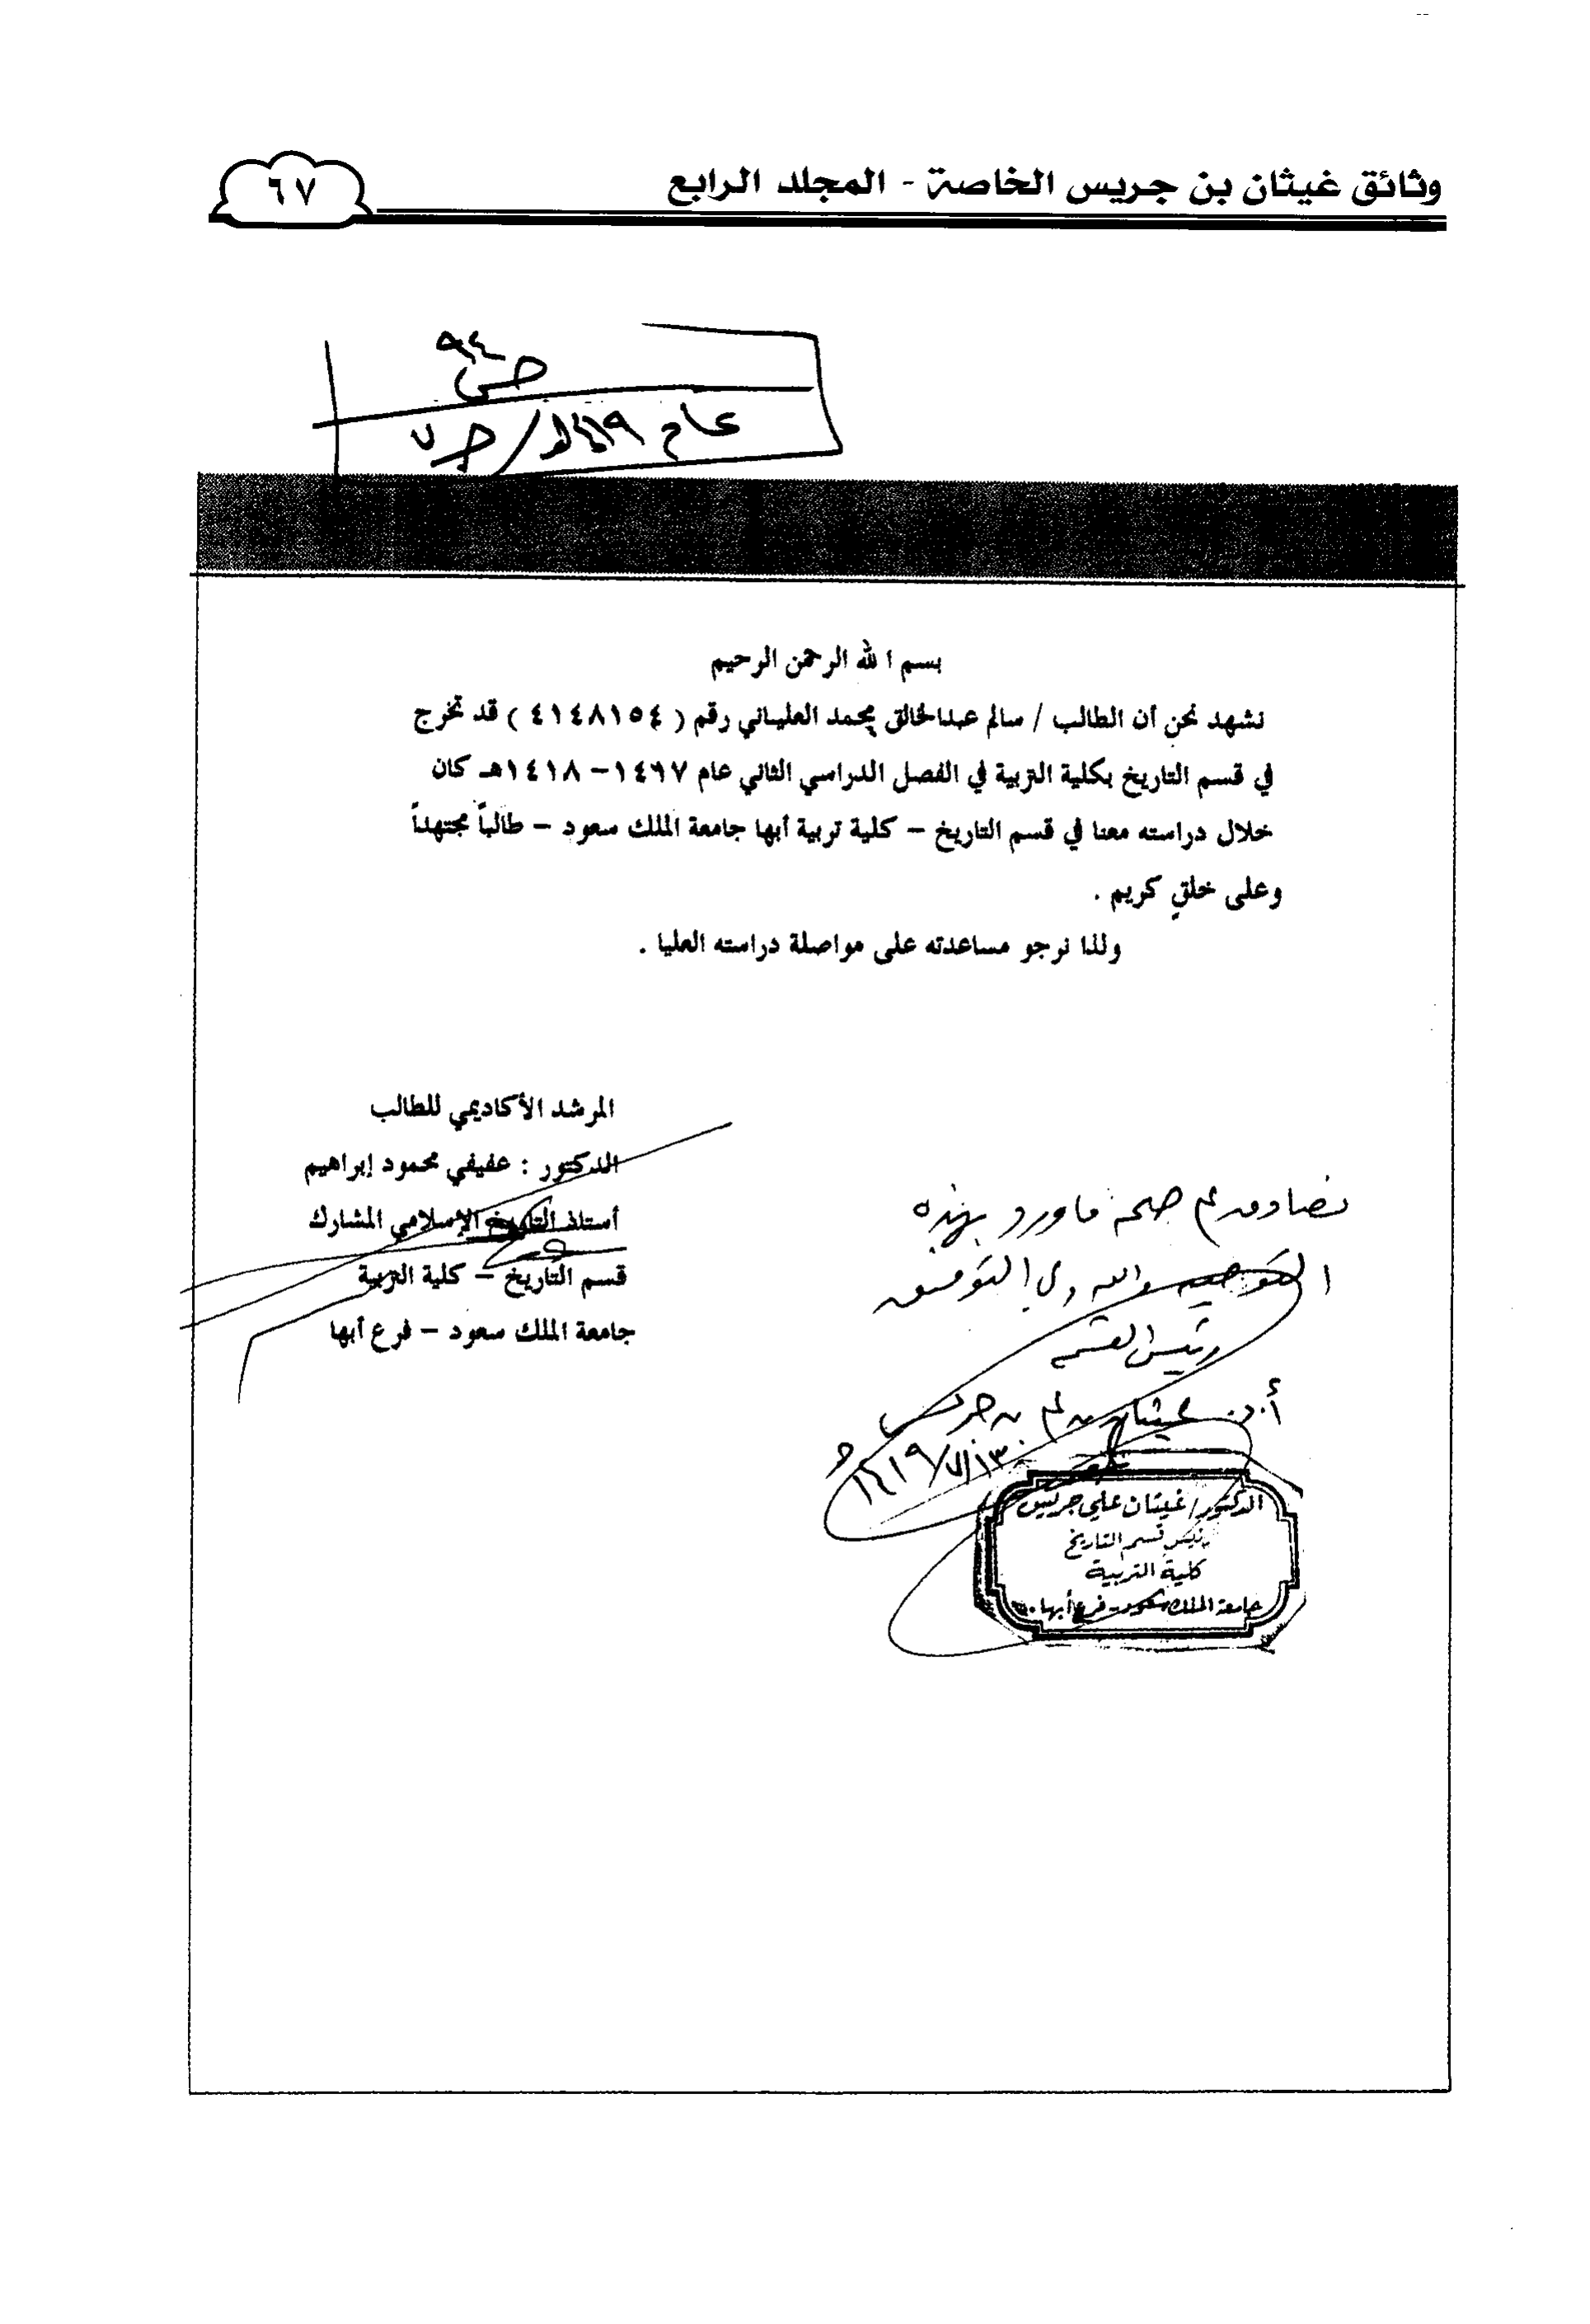 وثائق غيثان بن جريس الخاصة - المجلد الرابع
٦٧
ص ٩٤
عام ١٤١٩هـ / ج٧
بسم الله الرحمن الرحيم
نشهد نحن أن الطالب / سالم عبدالخالق محمد العلياني رقم ( ٤١٤٨١٥٤ ) قد تخرج
في قسم التاريخ بكلية التربية في الفصل الدراسي الثاني عام ١٤٦٧-١٤١٨هـ كان
خلال دراسته معنا في قسم التاريخ – كلية تربية أبها جامعة الملك سعود – طالباً مجتهداً
وعلى خلقٍ كريم .
ولذا نرجو مساعدته على مواصلة دراسته العليا .
المرشد الأكاديمي للطالب
الدكتور : عفيفي محمود إبراهيم
أستاذ التاريخ الإسلامي المشارك
قسم التاريخ – كلية التربية
جامعة الملك سعود – فرع أبها
نصادق على صحة ما ورد بهذه
التوصية والله ولي التوفيق
رئيس القسم
أ.د. غيثان بن علي بن جريس
١٤١٩/٧/١٣هـ
الدكتور/ غيثان علي جريس
رئيس قسم التاريخ
كلية التربية
جامعة الملك سعود - فرع أبها